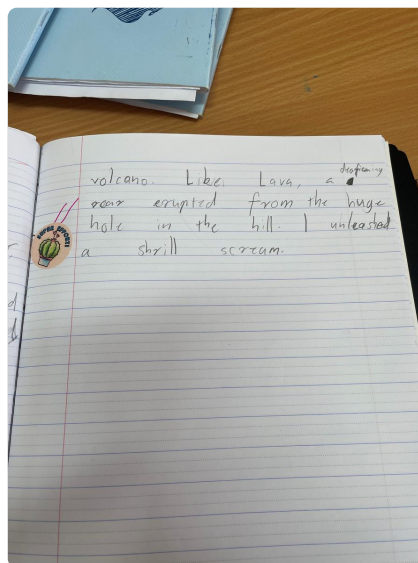 volcano. Like Lava, a deafening
roar erupted from the huge
hole in the hill. I unleashed
a shrill scream.